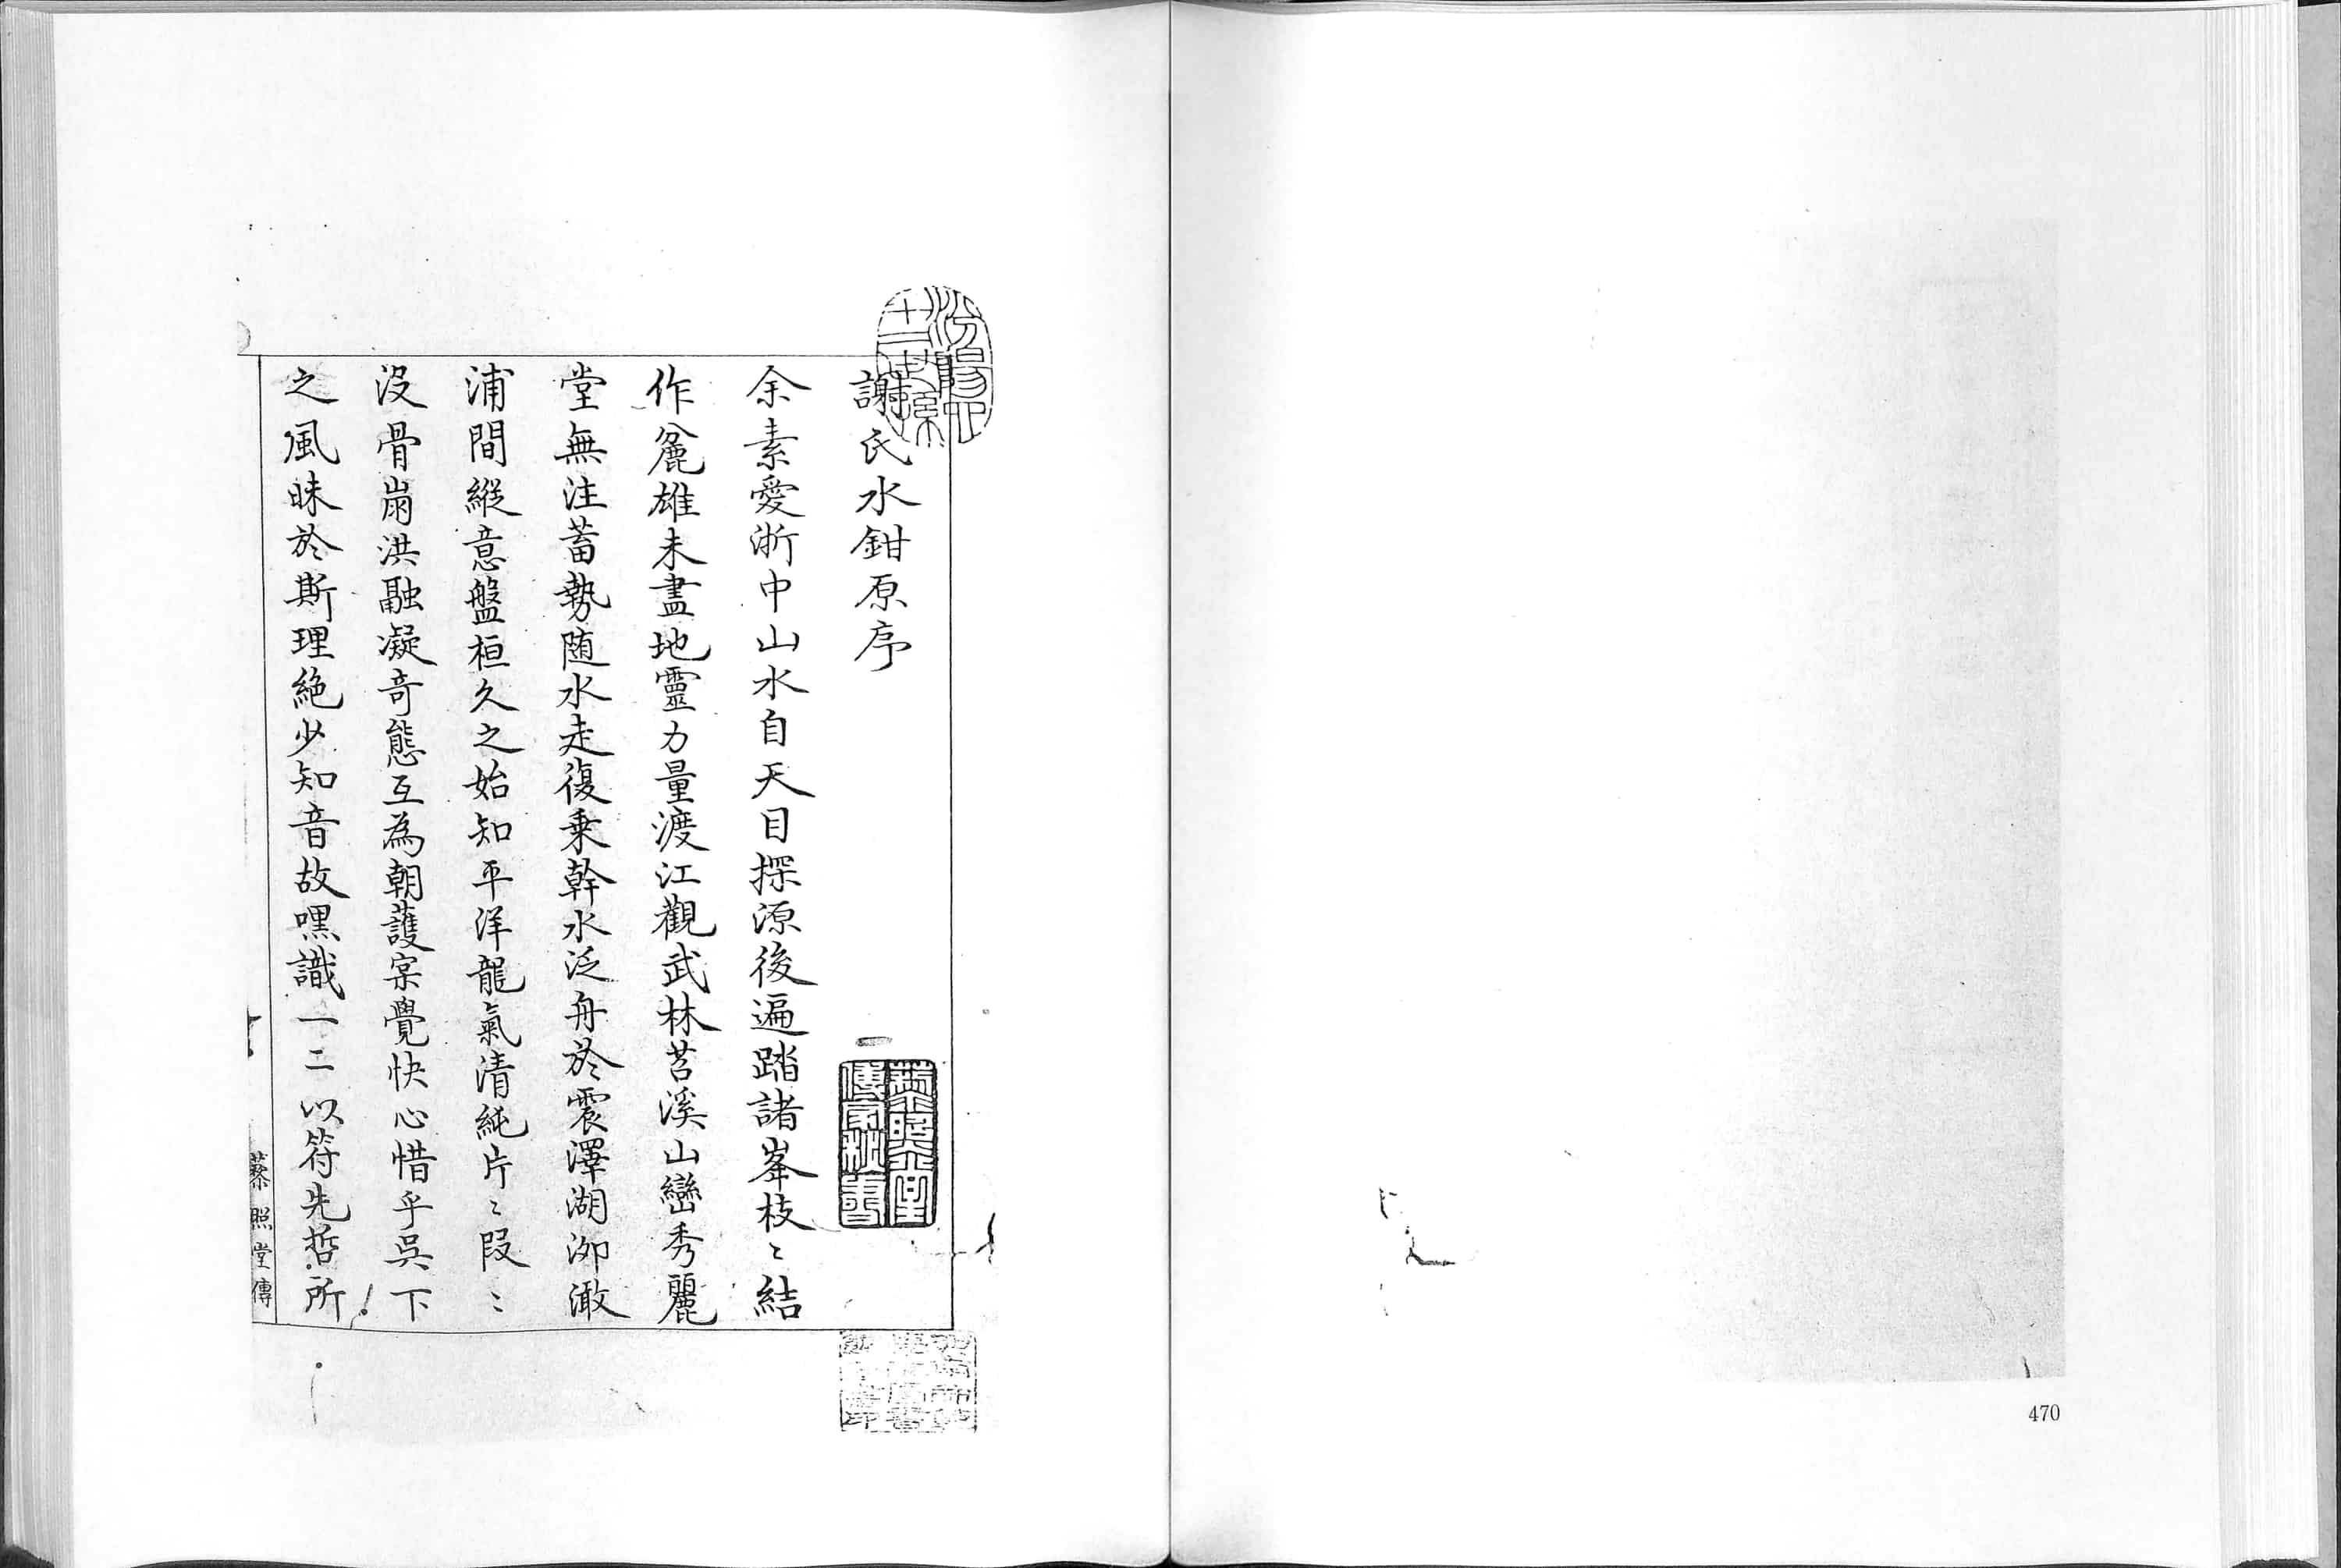 470
謝氏水鉗原序
余素愛浙中山水自天目探源後遍踏諸峯枝〻結
作麄雄未盡地靈力量渡江觀武林苕溪山巒秀麗
堂無注蓄勢随水走復乗幹水泛舟於震澤湖泖澉
浦間縱意盤桓久之始知平洋龍氣清純片〻段〻
没骨崩洪融凝奇態互為朝護寀覺快心惜乎吳下
之風昧於斯理絶少知音故嘿識一二以符先哲所
藜照堂傳
藜照堂
傳家秘書